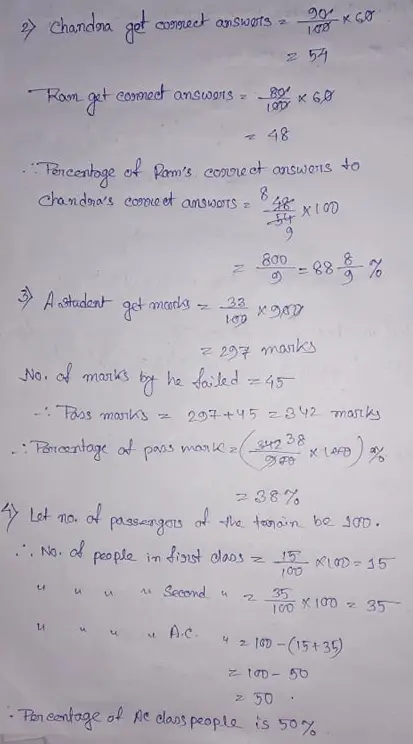 2) Chandra get correct answers = 90/100 × 60
= 54
Ram get correct answers = 80/100 × 60
= 48
∴ Percentage of Ram's correct answers to
Chandra's correct answers = 8 48/54 9 × 100
= 800/9 = 88 8/9 %
3) A student get marks = 33/100 × 900
= 297 marks
No. of marks by he failed = 45
∴ Pass marks = 297 + 45 = 342 marks
∴ Percentage of pass mark = (342 38/900 × 100) %
= 38%
4) Let no. of passengers of the train be 100.
∴ No. of people in first class = 15/100 × 100 = 15
" " " " Second " = 35/100 × 100 = 35
" " " " A.C. " = 100 - (15 + 35)
= 100 - 50
= 50 .
∴ Percentage of AC class people is 50%.